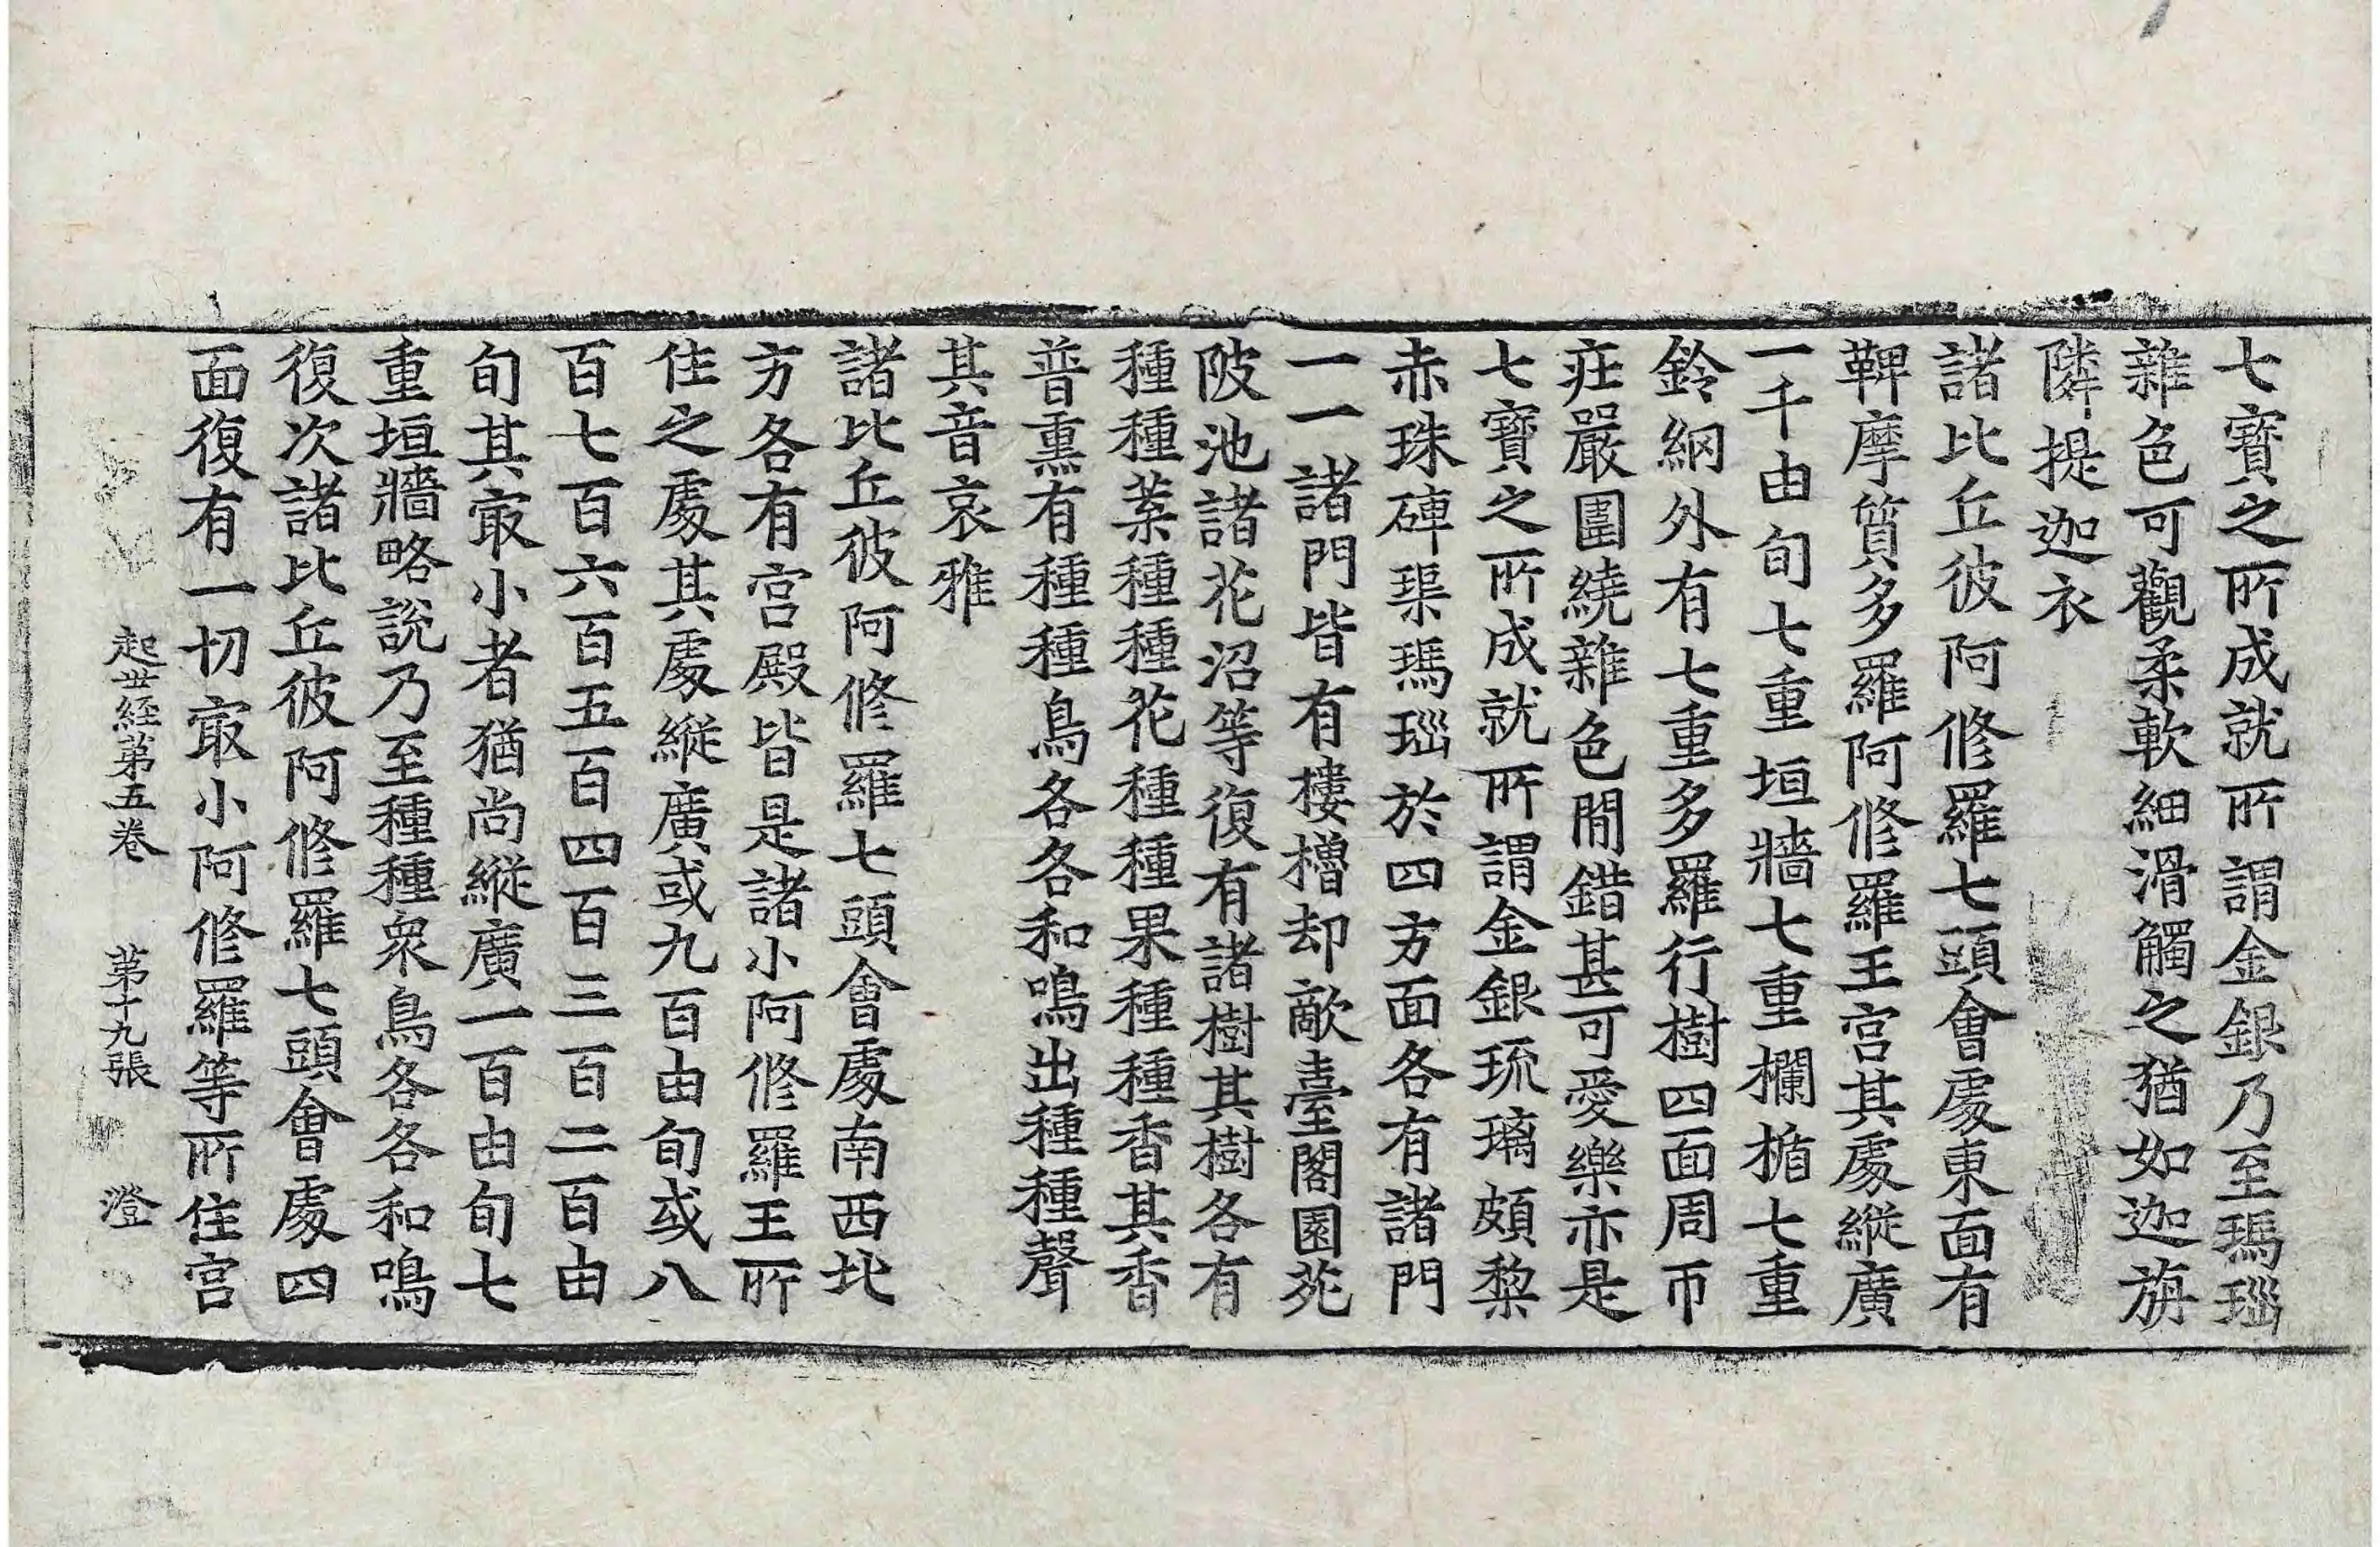 七寳之所成就所謂金銀乃至瑪瑙
雜色可觀柔軟細滑觸之猶如迦旃
隣提迦衣
諸比丘彼阿修羅七頭會處東面有
鞞摩質多羅阿修羅王宮其處縱廣
一千由旬七重垣牆七重欄楯七重
鈴網外有七重多羅行樹四面周帀
莊嚴圍繞雜色間錯甚可愛樂亦是
七寳之所成就所謂金銀琉璃頗梨
赤珠硨璖瑪瑙於四方面各有諸門
一一諸門皆有樓櫓却敵臺閣園苑
陂池諸花沼等復有諸樹其樹各有
種種葉種種花種種果種種香其香
普熏有種種鳥各各和鳴出種種聲
其音哀雅
諸比丘彼阿修羅七頭會處南西北
方各有宮殿皆是諸小阿修羅王所
住之處其處縱廣或九百由旬或八
百七百六百五百四百三百二百由
旬其㝡小者猶尚縱廣一百由旬七
重垣牆略說乃至種種衆鳥各各和鳴
復次諸比丘彼阿修羅七頭會處四
面復有一切㝡小阿修羅等所住宮
起世経第五卷 第十九張 澄